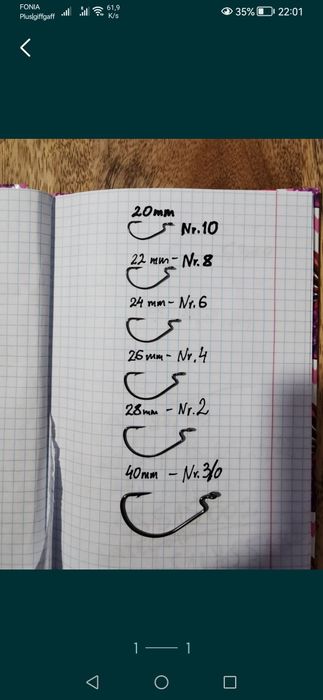 FONIA
Plus|giffgaff
61,9
K/s
35%
22:01
20mm
Nr.10
22 mm - Nr.8
24 mm - Nr.6
26 mm - Nr.4
28mm - Nr.2
40mm - Nr.3/0
1 — 1